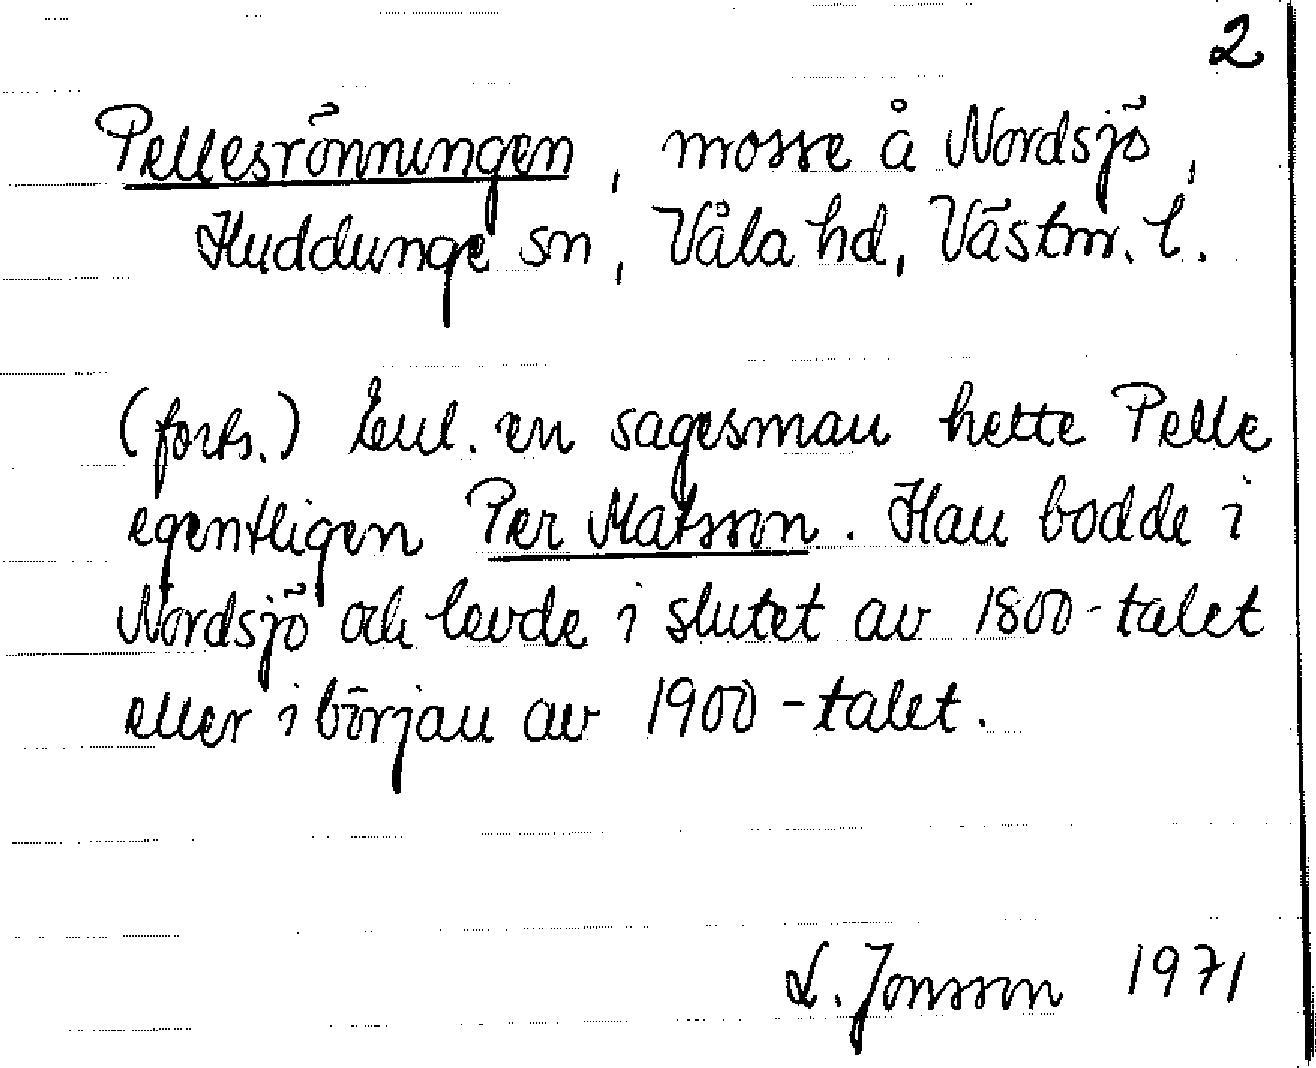 2
Pellesrönningen, mosse å Nordsjö,
Huddunge sn, Våla hd, Västm. l.
(forts.) Enl. en sagesman hette Pelle
egentligen Per Matsson. Han bodde i
Nordsjö och levde i slutet av 1800-talet
eller i början av 1900-talet.
L. Jonsson 1971